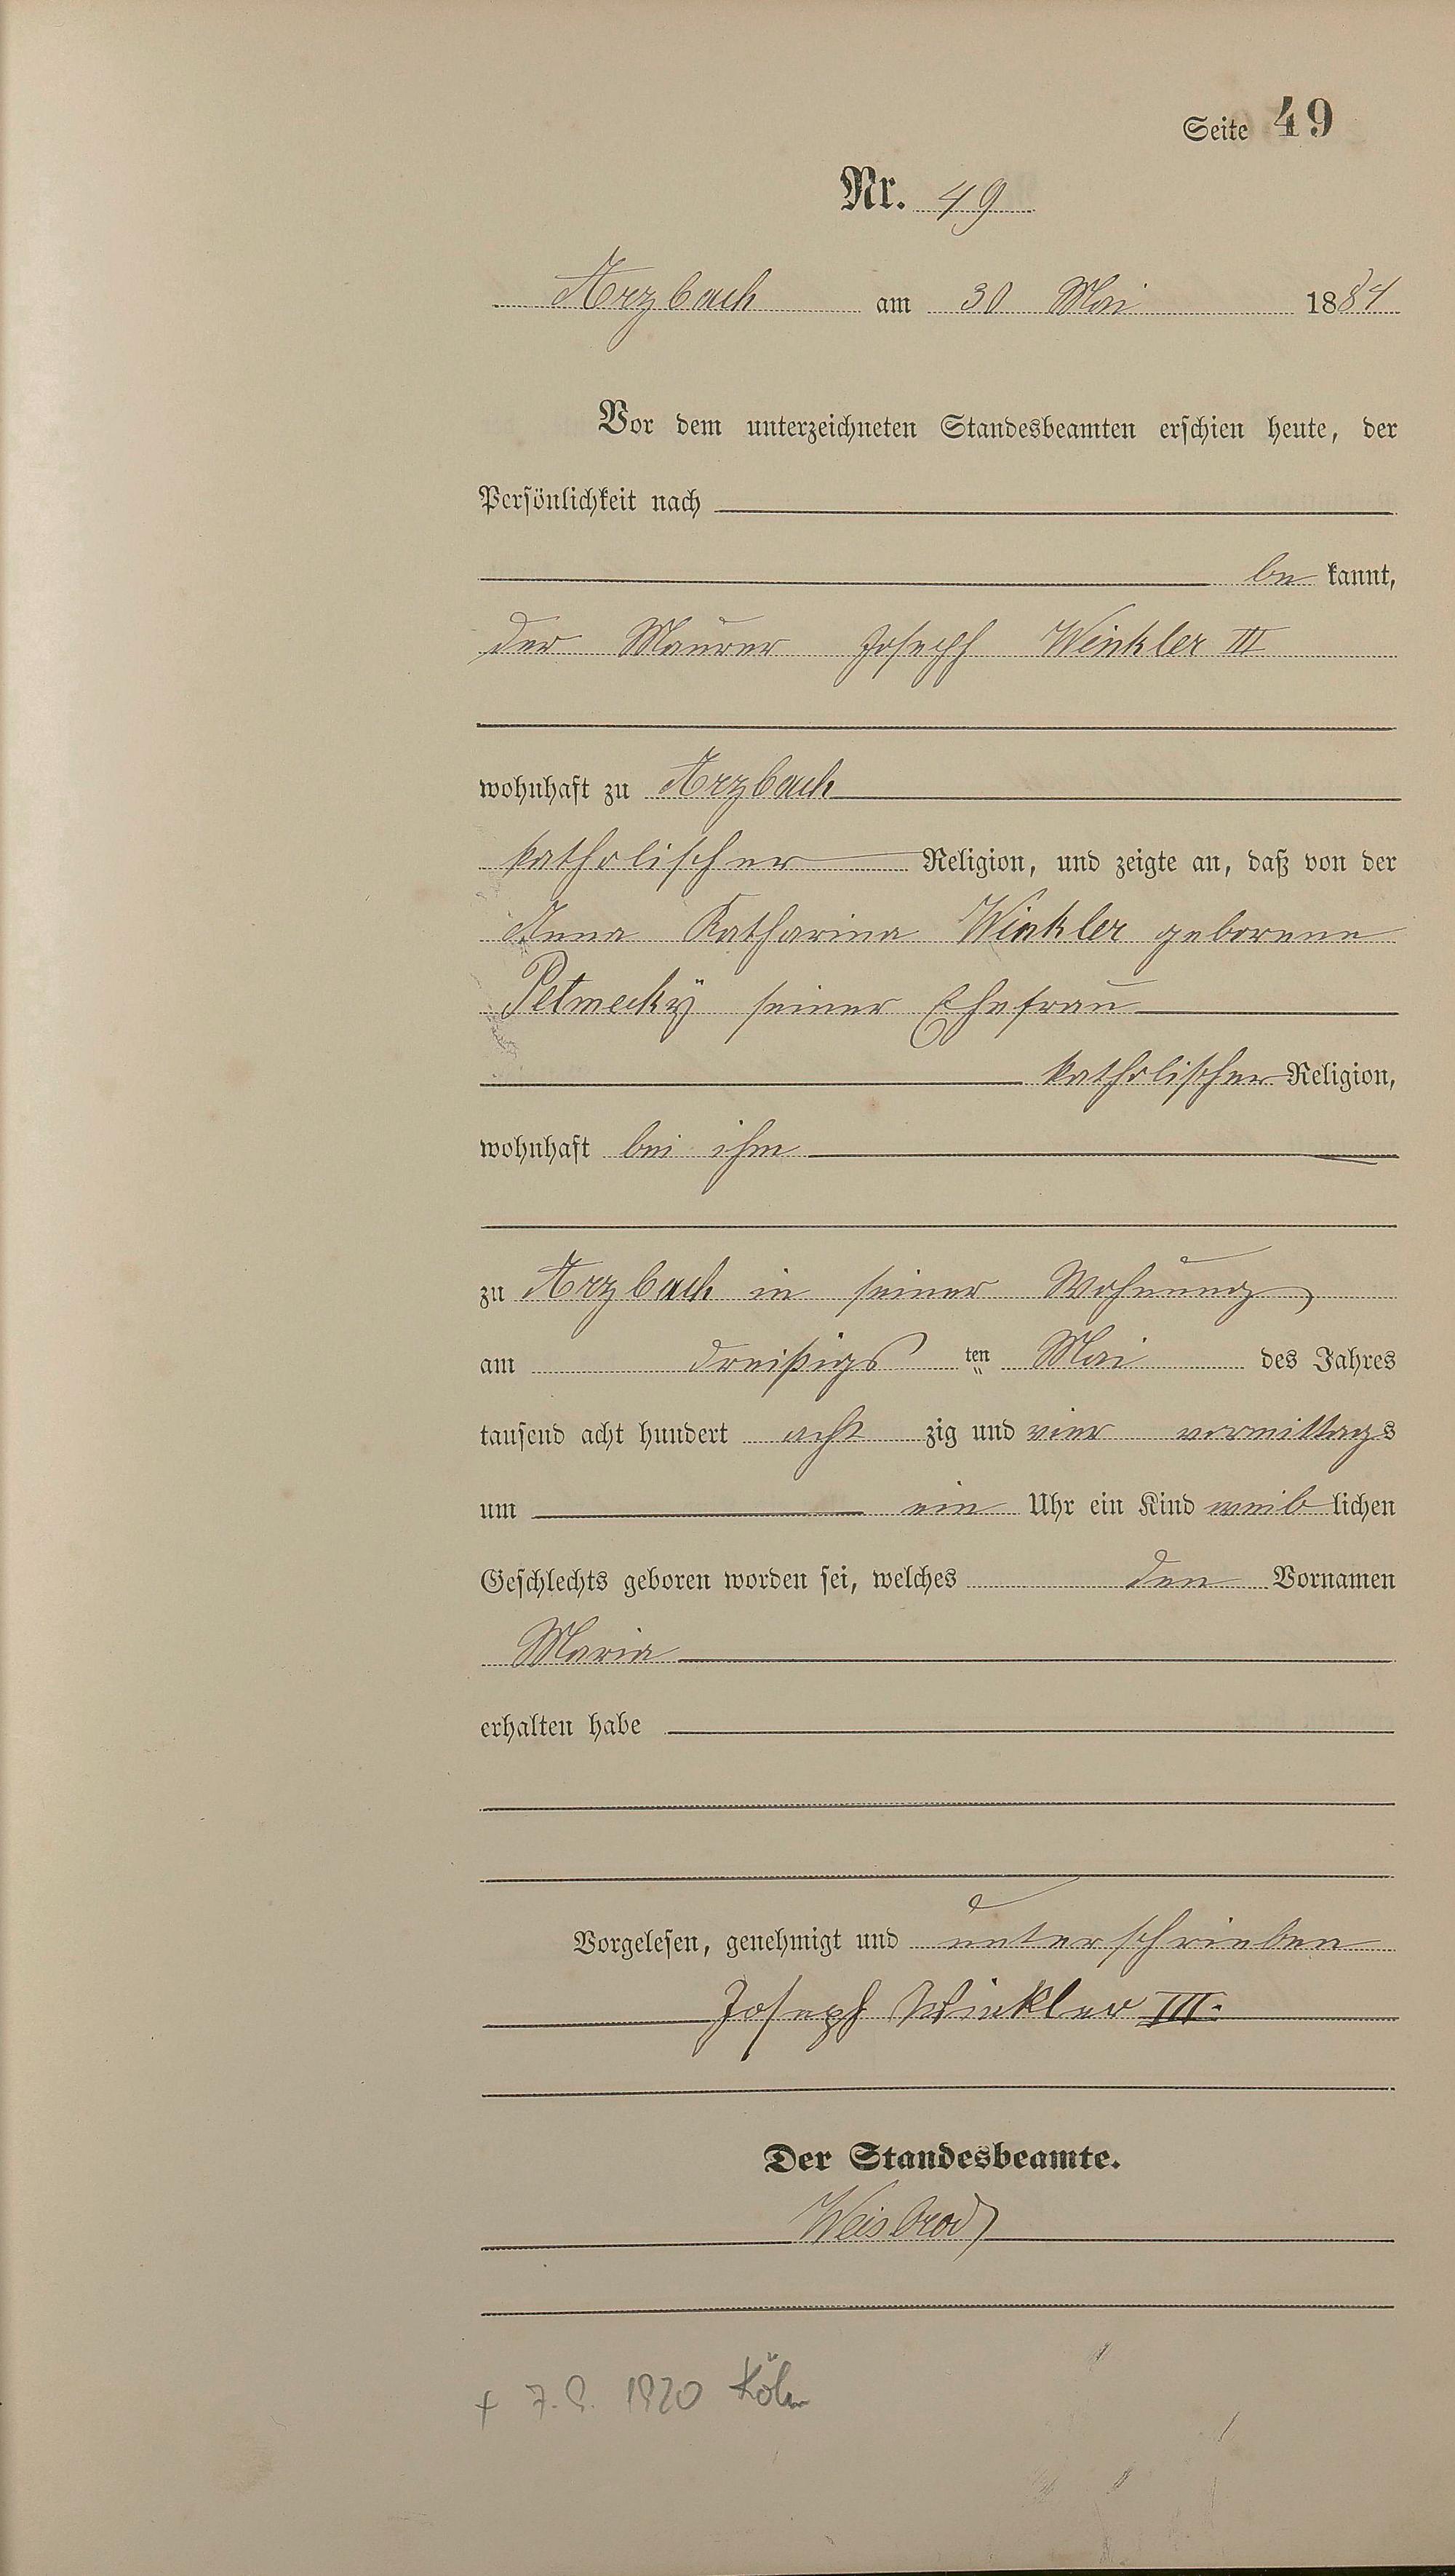 Seite 49
Nr. 49
Arzbach am 30 Mai 1884
Vor dem unterzeichneten Standesbeamten erschien heute, der
Persönlichkeit nach
be kannt,
der Maurer Joseph Winkler III
wohnhaft zu Arzbach
katholischer Religion, und zeigte an, daß von der
Anna Katharina Winkler geborene
Petmecky seiner Ehefrau
katholischer Religion,
wohnhaft bei ihm
zu Arzbach in seiner Wohnung
am dreißigs ten Mai des Jahres
tausend acht hundert acht zig und vier vormittags
um ein Uhr ein Kind weib lichen
Geschlechts geboren worden sei, welches den Vornamen
Maria
erhalten habe
Vorgelesen, genehmigt und unterschrieben
Joseph Winkler III.
Der Standesbeamte.
Weisbrod
+ 7. 1920 Köln